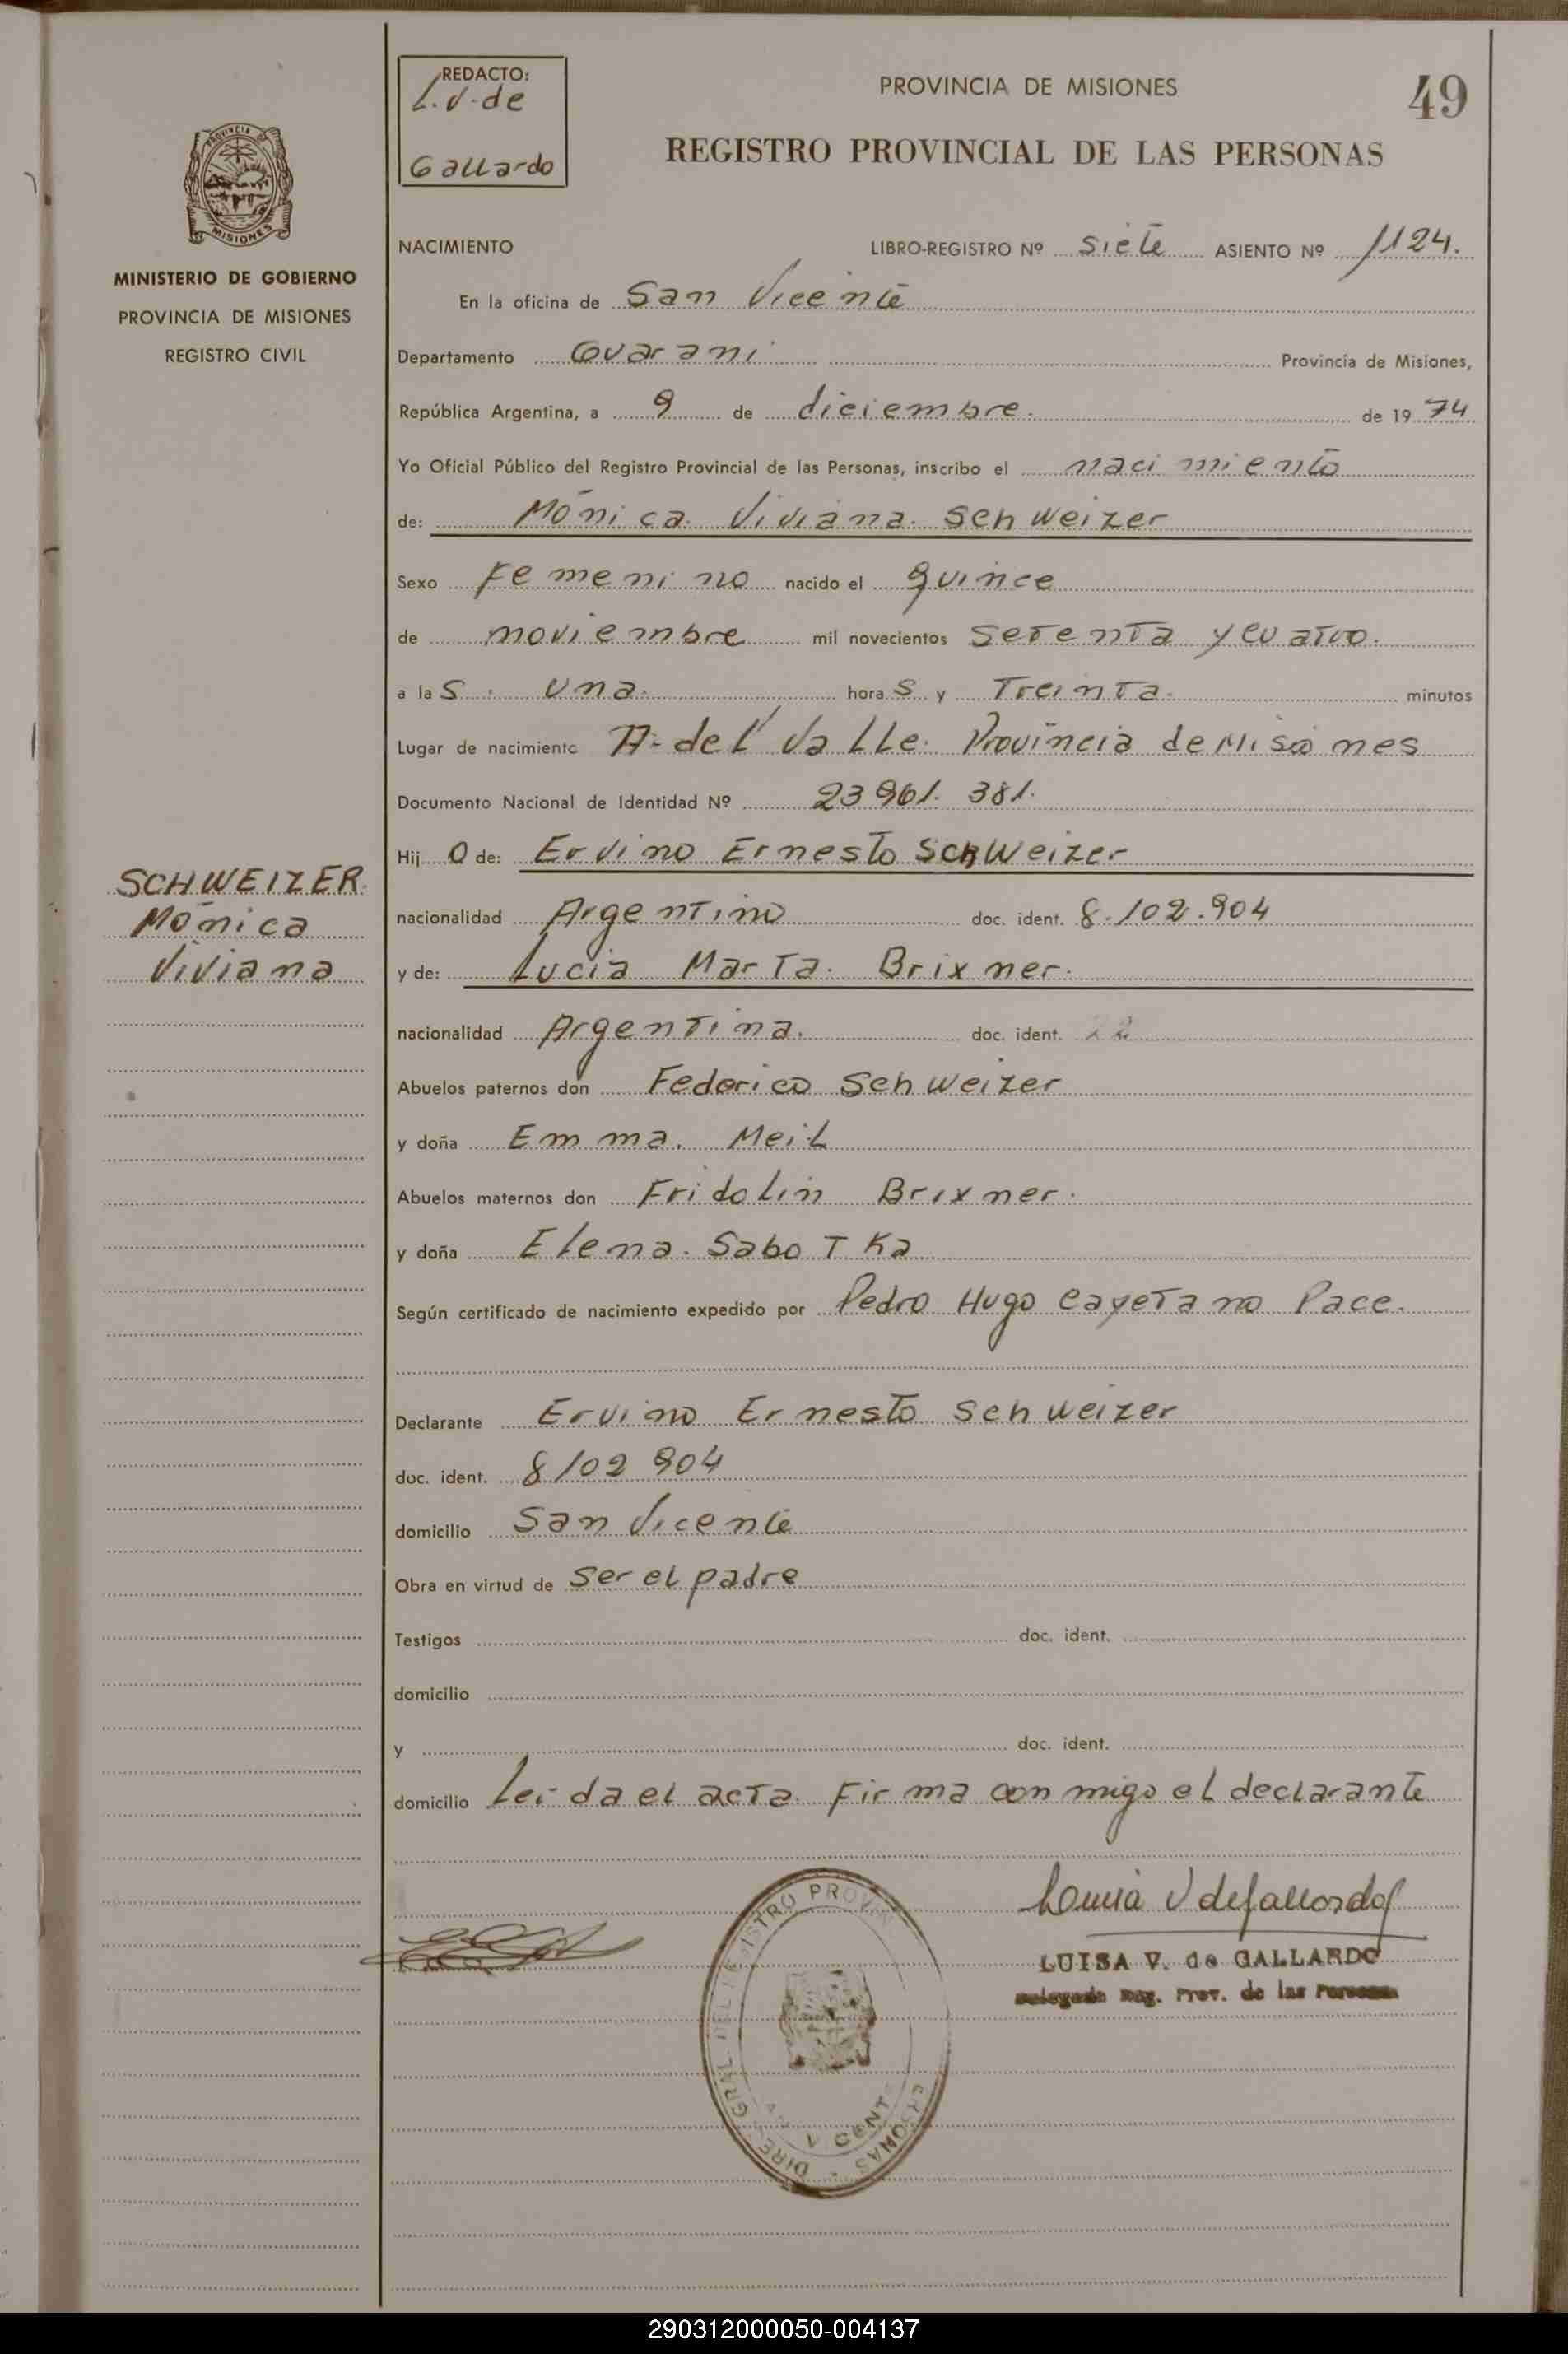 REDACTO:
L.V. de
Gallardo
PROVINCIA DE MISIONES
49
REGISTRO PROVINCIAL DE LAS PERSONAS
PROVINCIA DE
MISIONES
MINISTERIO DE GOBIERNO
PROVINCIA DE MISIONES
REGISTRO CIVIL
NACIMIENTO LIBRO-REGISTRO Nº siete ASIENTO Nº 1124.
En la oficina de San Vicente
Departamento Guarani Provincia de Misiones,
República Argentina, a 9 de diciembre. de 1974
Yo Oficial Público del Registro Provincial de las Personas, inscribo el nacimiento
de: Mónica Viviana Schweizer
Sexo Femenino nacido el quince
de noviembre mil novecientos setenta y cuatro.
a las una. horas y Treinta. minutos
Lugar de nacimiento A. del Valle. Provincia de Misiones
Documento Nacional de Identidad Nº 23961.381.
Hijo de: Ervino Ernesto Schweizer
SCHWEIZER
Mónica
Viviana
nacionalidad Argentino doc. ident. 8.102.904
y de: Lucia Marta Brixner.
nacionalidad Argentina. doc. ident.
Abuelos paternos don Federico Schweizer
y doña Emma. Meil
Abuelos maternos don Fridolin Brixner.
y doña Elena. Sabotka
Según certificado de nacimiento expedido por Pedro Hugo Cayetano Pace.
Declarante Ervino Ernesto Schweizer
doc. ident. 8102904
domicilio San Vicente
Obra en virtud de ser el padre
Testigos doc. ident.
domicilio
y doc. ident.
domicilio Leida el acta firma conmigo el declarante
LUISA V. de GALLARDO
Delegada Reg. Prov. de las Personas
290312000050-004137